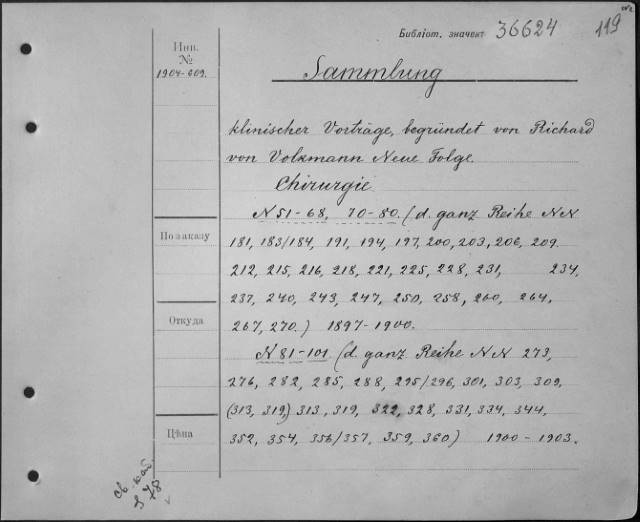 Библіот. значекъ 36624 119
Инв.
№
1904-609.
Sammlung
klinischer Vorträge, begründet von Richard
von Volkmann Neue Folge.
Chirurgie
N 51-68, 70-80. (d. ganz Reihe NN
По заказу
181, 183/184, 191, 194, 197, 200, 203, 206, 209.
212, 215, 216, 218, 221, 225, 228, 231, 234,
237, 240, 243, 247, 250, 258, 260, 264,
Откуда
267, 270.) 1897-1900.
N 81-101 (d. ganz Reihe NN 273,
276, 282, 285, 288, 295/296, 301, 303, 309,
(313, 319,) 313, 319, 322, 328, 331, 334, 344,
Цѣна
352, 354, 356/357, 359, 360) 1900-1903.
св. каб.
S 78